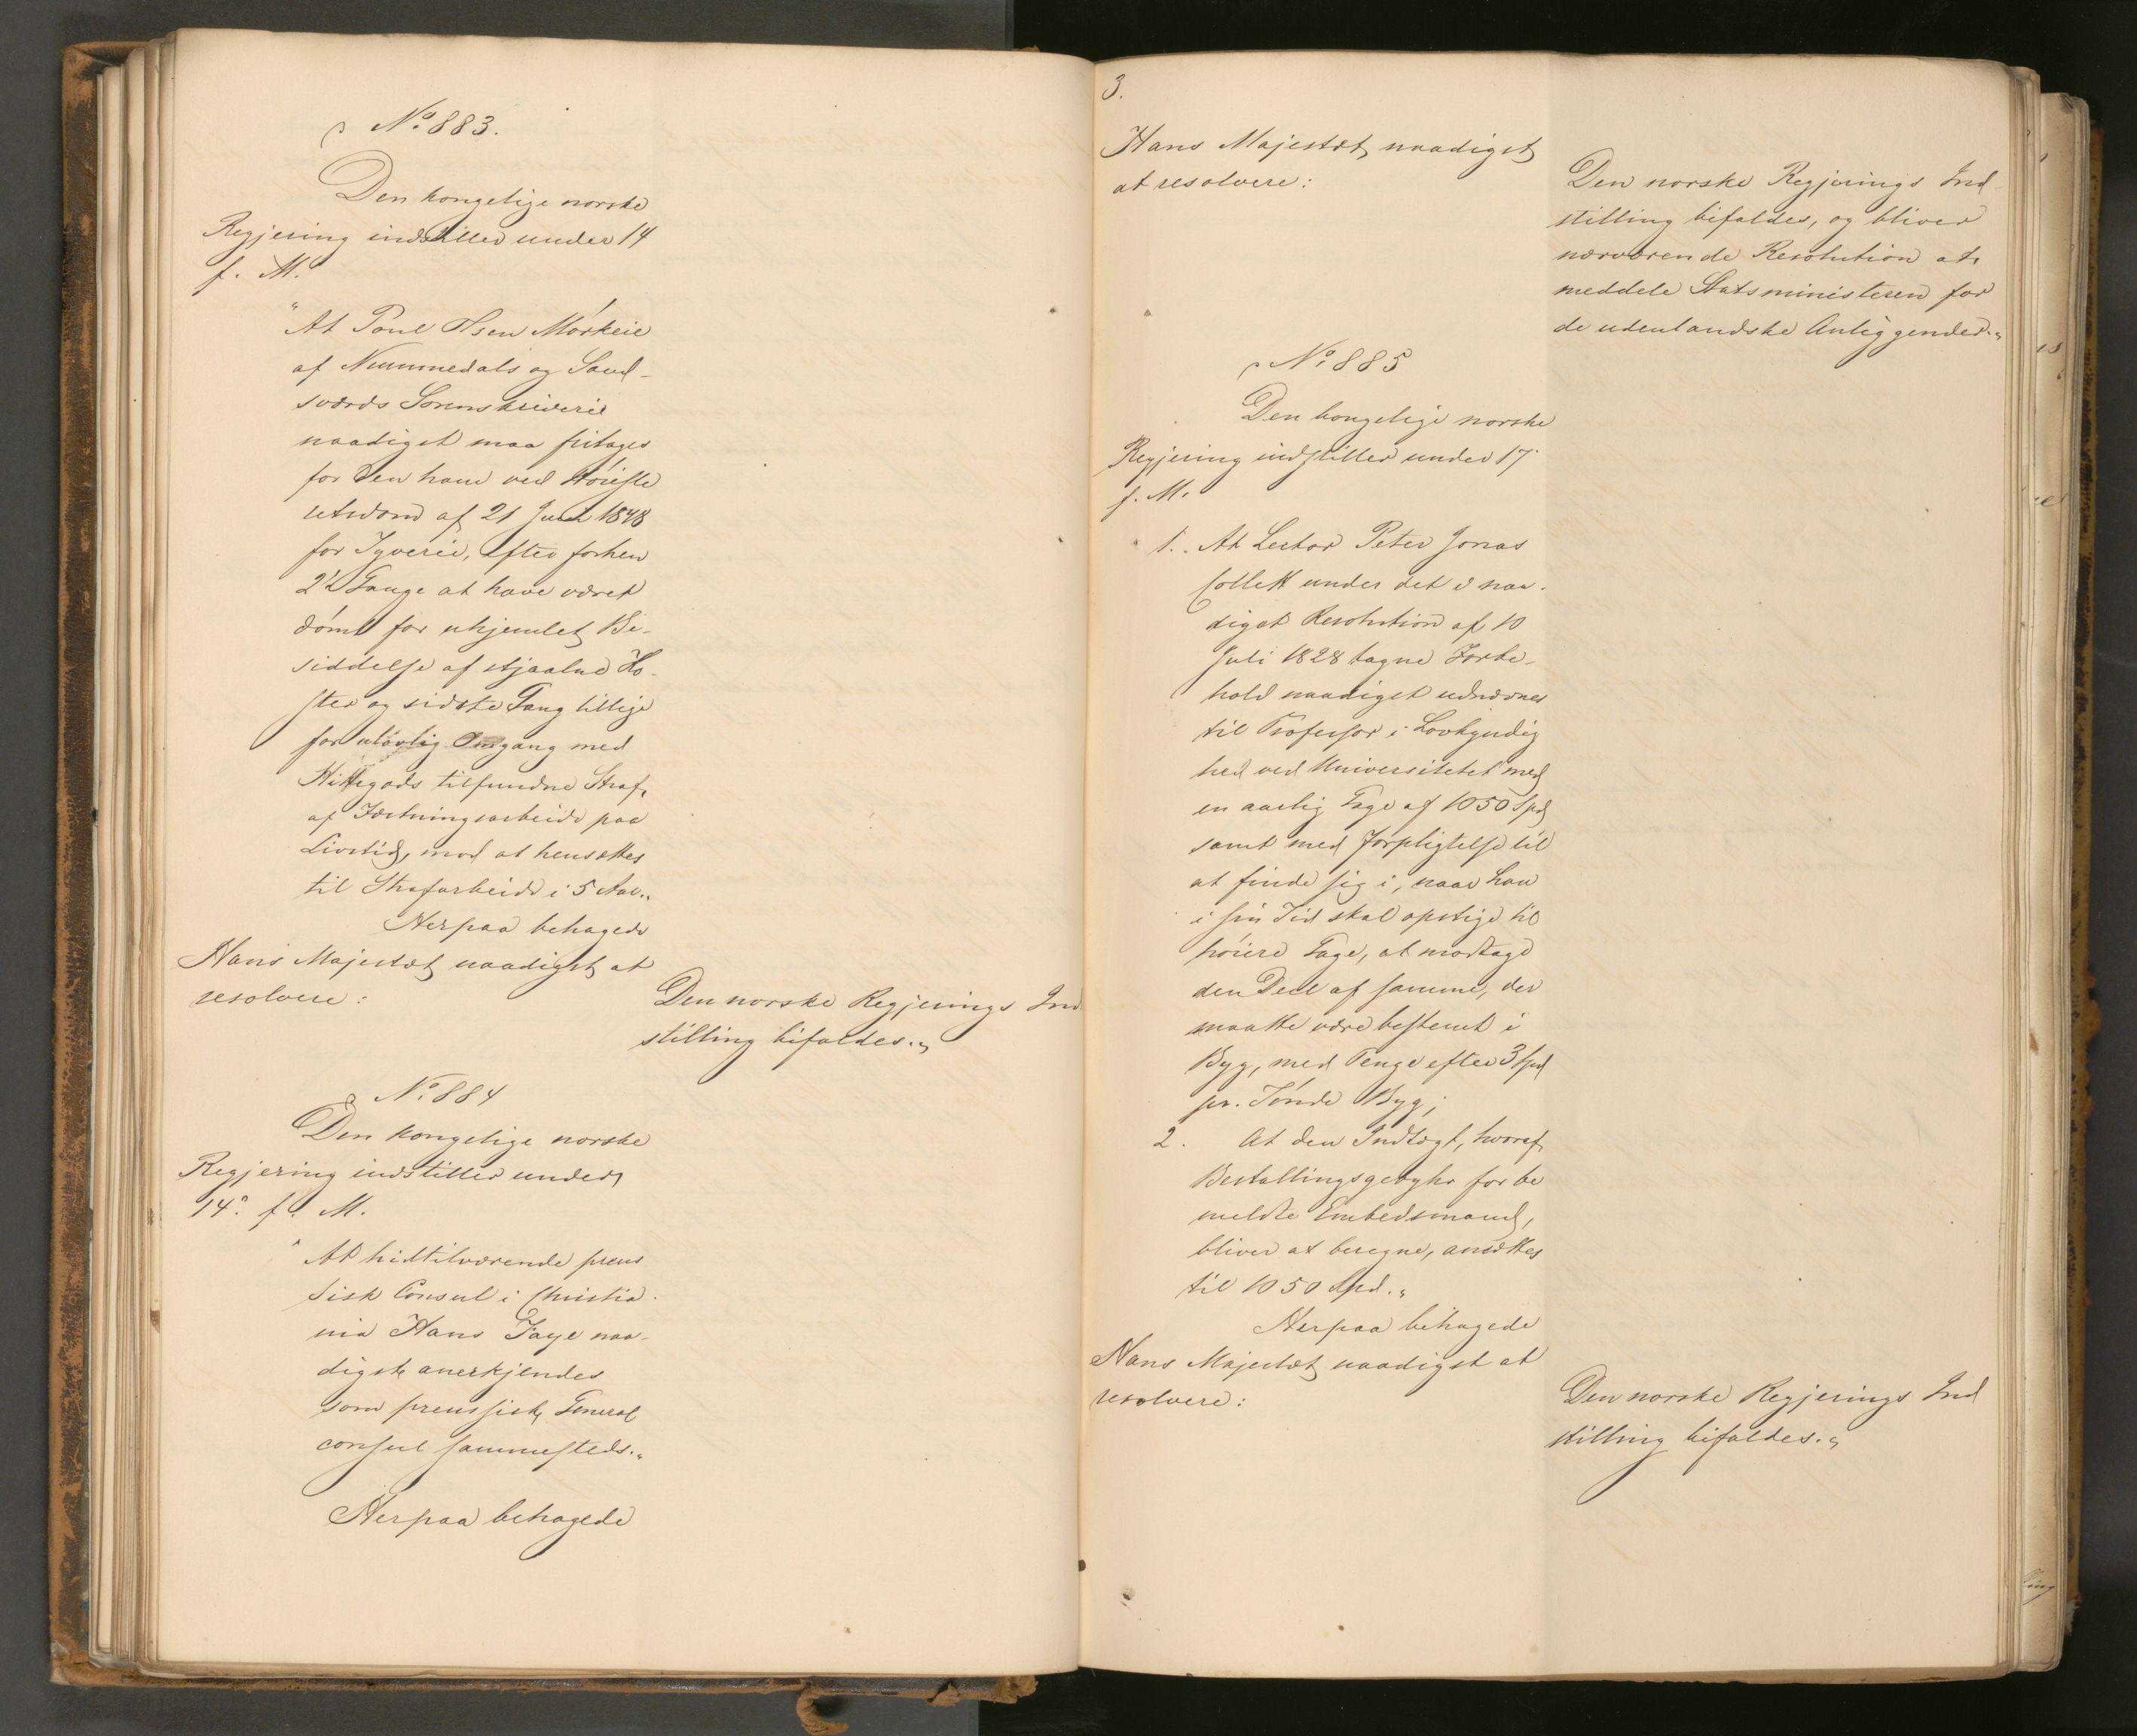 No. 883.
Den kongelige norske
Regjering indstiller under 14
f. M.
"At Poul Olsen Mörkeie
af Nummedals og Sand-
sværds Sorenskriverie
naadigst maa fritages
for den ham ved Höieste
retsdom af 21 Juli 1848
for Tyverie, efter forhen
2de Gange at have været
dömt for uhjemlet Be-
siddelse af stjaalne Ko-
ster og sidste Gang tillige
for ulovlig Omgang med
Hittegods tilfundne Straf
af Fæstningsarbeide paa
Livstid, mod at hensættes
til Strafarbeide i 5 Aar."
Herpaa behagede
Hans Majestæt naadigst at
resolvere:
Den norske Regjerings Ind
stilling bifaldes."
No. 884
Den kongelige norske
Regjering indstiller under
14. f. M.
"At hidtilværende preus
sisk Consul i Christia-
nia Hans Faye naa-
digst anerkjendes
som preussisk General
consul sammesteds."
Herpaa behagede
3.
Hans Majestæt naadigst
at resolvere:
Den norske Regjerings Ind
stilling bifaldes, og bliver
nærværende Resolution at
meddele Statsministeren for
de udenlandske Anliggender."
No. 885
Den kongelige norske
Regjering indstiller under 17
f. M.
1. At Lector Peter Jonas
Collett under det i naa-
digst Resolution af 10
Juli 1828 tagne Forbe-
hold naadigst udnævnes
til Professor i Lovkyndig
hed ved Universitetet med
en aarlig Gage af 1050 Spd
samt med Forpligtelse til
at finde sig i, naar han
i sin Tid skal opstige til
höiere Gage, at modtage
den Deel af samme, der
maatte være bestemt i
Byg, med Penge efter 3 Spd
pr. Tönde Byg;
2. At den Indtægt, hvoraf
Bestallingsgebyhr for be
meldte Embedsmand,
bliver at beregne, ansættes
til 1050 Spd."
Herpaa behagede
Hans Majestæt naadigst at
resolvere:
Den norske Regjerings Ind
stilling bifaldes."